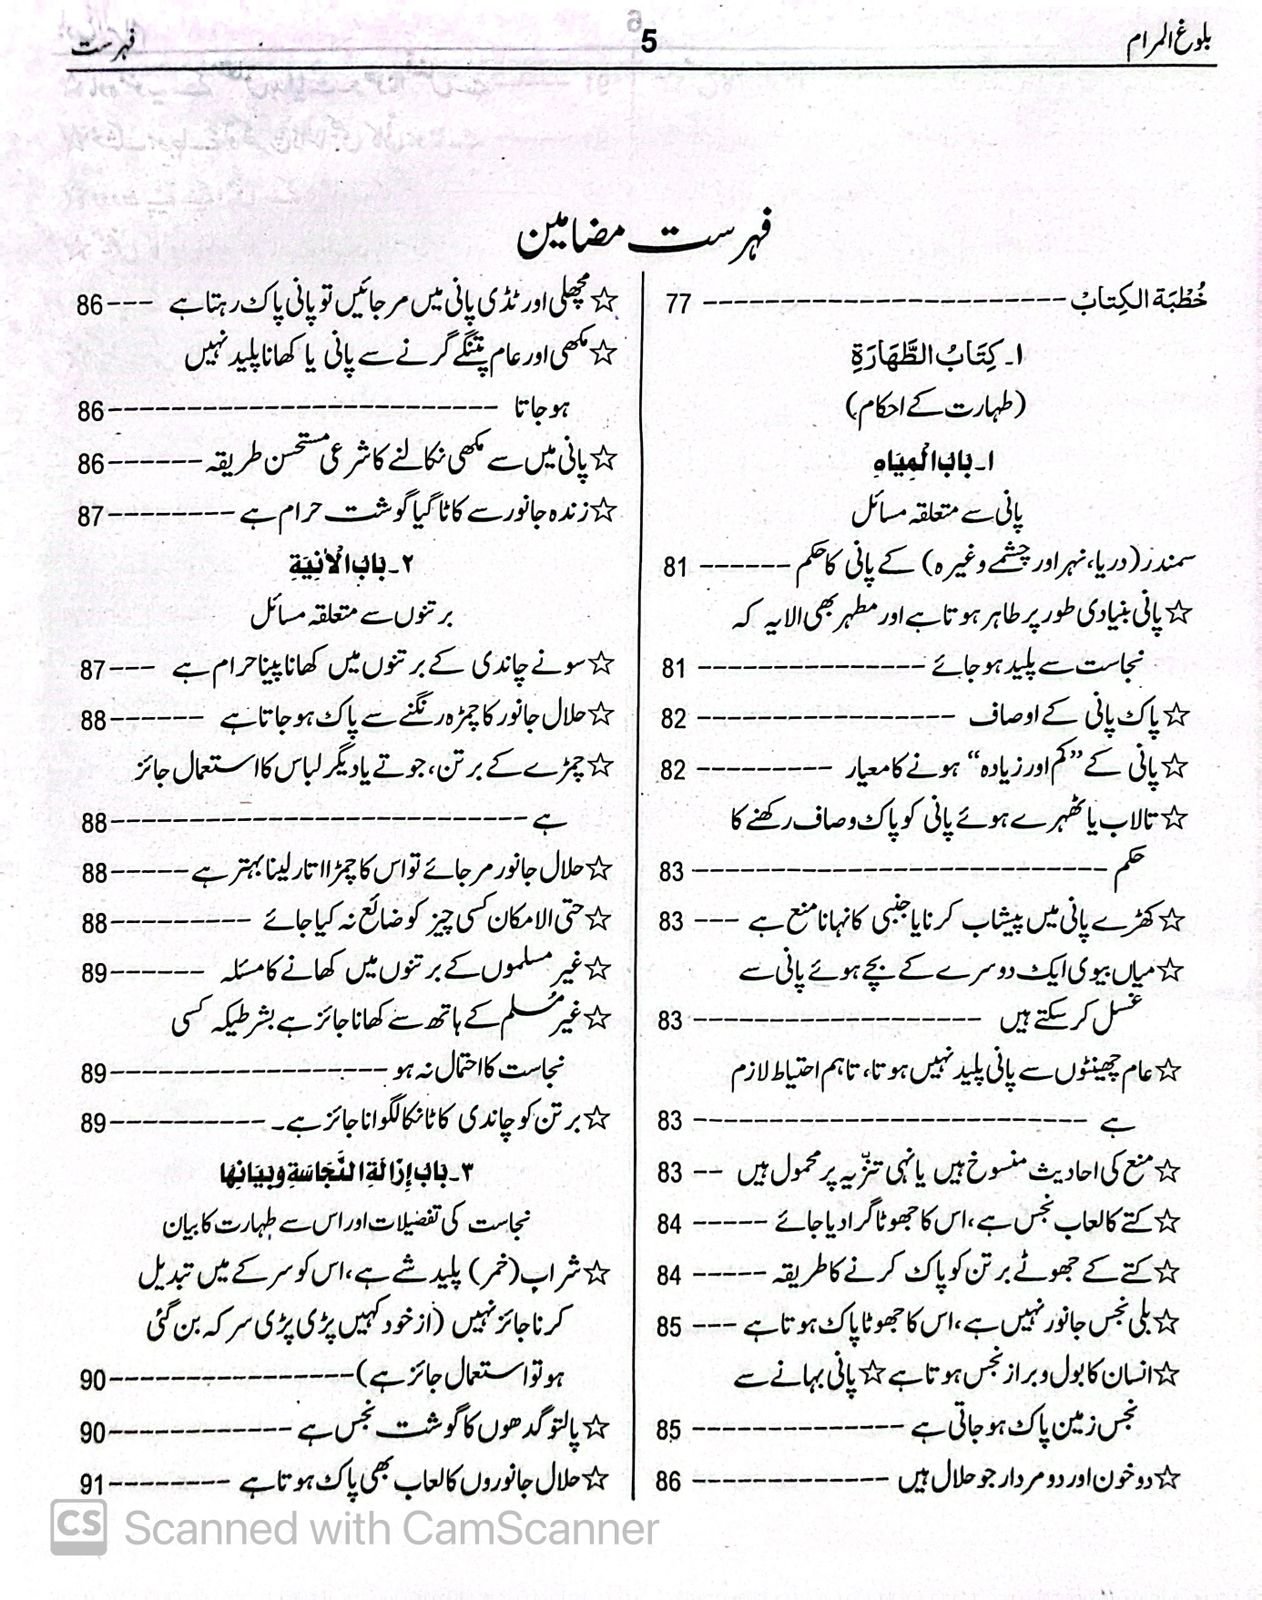 بلوغ المرام 5 فہرست
فہرست مضامین
خُطْبَۃ الکِتاب ------------------------ 77
۱۔ کِتَابُ الطَّهَارَةِ
(طہارت کے احکام)
۱۔ بَابُ الْمِيَاهِ
پانی سے متعلقہ مسائل
سمندر (دریا، نہر اور چشمے وغیرہ) کے پانی کا حکم ------ 81
☆ پانی بنیادی طور پر طاہر ہوتا ہے اور مطہر بھی الا یہ کہ
نجاست سے پلید ہو جائے --------------- 81
☆ پاک پانی کے اوصاف ----------------- 82
☆ پانی کے ”کم اور زیادہ“ ہونے کا معیار --------- 82
☆ تالاب یا ٹھہرے ہوئے پانی کو پاک و صاف رکھنے کا
حکم --------------------------- 83
☆ کھڑے پانی میں پیشاب کرنا یا جنبی کا نہانا منع ہے --- 83
☆ میاں بیوی ایک دوسرے کے بچے ہوئے پانی سے
غسل کر سکتے ہیں ------------------- 83
☆ عام چھینٹوں سے پانی پلید نہیں ہوتا، تاہم احتیاط لازم
ہے -------------------------- 83
☆ منع کی احادیث منسوخ ہیں یا نہی تنزیہ پر محمول ہیں -- 83
☆ کتے کا لعاب نجس ہے، اس کا جھوٹا گرا دیا جائے ----- 84
☆ کتے کے جھوٹے برتن کو پاک کرنے کا طریقہ ----- 84
☆ بلی نجس جانور نہیں ہے، اس کا جھوٹا پاک ہوتا ہے --- 85
☆ انسان کا بول و براز نجس ہوتا ہے ☆ پانی بہانے سے
نجس زمین پاک ہو جاتی ہے -------------- 85
☆ دو خون اور دو مردار جو حلال ہیں ------------- 86
☆ مچھلی اور ٹڈی پانی میں مر جائیں تو پانی پاک رہتا ہے --- 86
☆ مکھی اور عام پتنگے گرنے سے پانی یا کھانا پلید نہیں
ہو جاتا -------------------------- 86
☆ پانی میں سے مکھی نکالنے کا شرعی مستحسن طریقہ ------ 86
☆ زندہ جانور سے کاٹا گیا گوشت حرام ہے -------- 87
۲۔ بَابُ الْآنِيَةِ
برتنوں سے متعلقہ مسائل
☆ سونے چاندی کے برتنوں میں کھانا پینا حرام ہے --- 87
☆ حلال جانور کا چمڑہ رنگنے سے پاک ہو جاتا ہے ------ 88
☆ چمڑے کے برتن، جوتے یا دیگر لباس کا استعمال جائز
ہے ---------------------------- 88
☆ حلال جانور مر جائے تو اس کا چمڑا اتار لینا بہتر ہے ----- 88
☆ حتی الامکان کسی چیز کو ضائع نہ کیا جائے --------- 88
☆ غیر مسلموں کے برتنوں میں کھانے کا مسئلہ ------ 89
☆ غیر مُسلم کے ہاتھ سے کھانا جائز ہے بشرطیکہ کسی
نجاست کا احتمال نہ ہو ------------------ 89
☆ برتن کو چاندی کا ٹانکا لگوانا جائز ہے۔ ---------- 89
۳۔ بَابُ إِزَالَةِ النَّجَاسَةِ وَبَيَانِهَا
نجاست کی تفصیلات اور اس سے طہارت کا بیان
☆ شراب (خمر) پلید شے ہے، اس کو سرکے میں تبدیل
کرنا جائز نہیں (از خود کہیں پڑی پڑی سرکہ بن گئی
ہو تو استعمال جائز ہے) ---------------- 90
☆ پالتو گدھوں کا گوشت نجس ہے ------------ 90
☆ حلال جانوروں کا لعاب بھی پاک ہوتا ہے -------- 91
CS Scanned with CamScanner